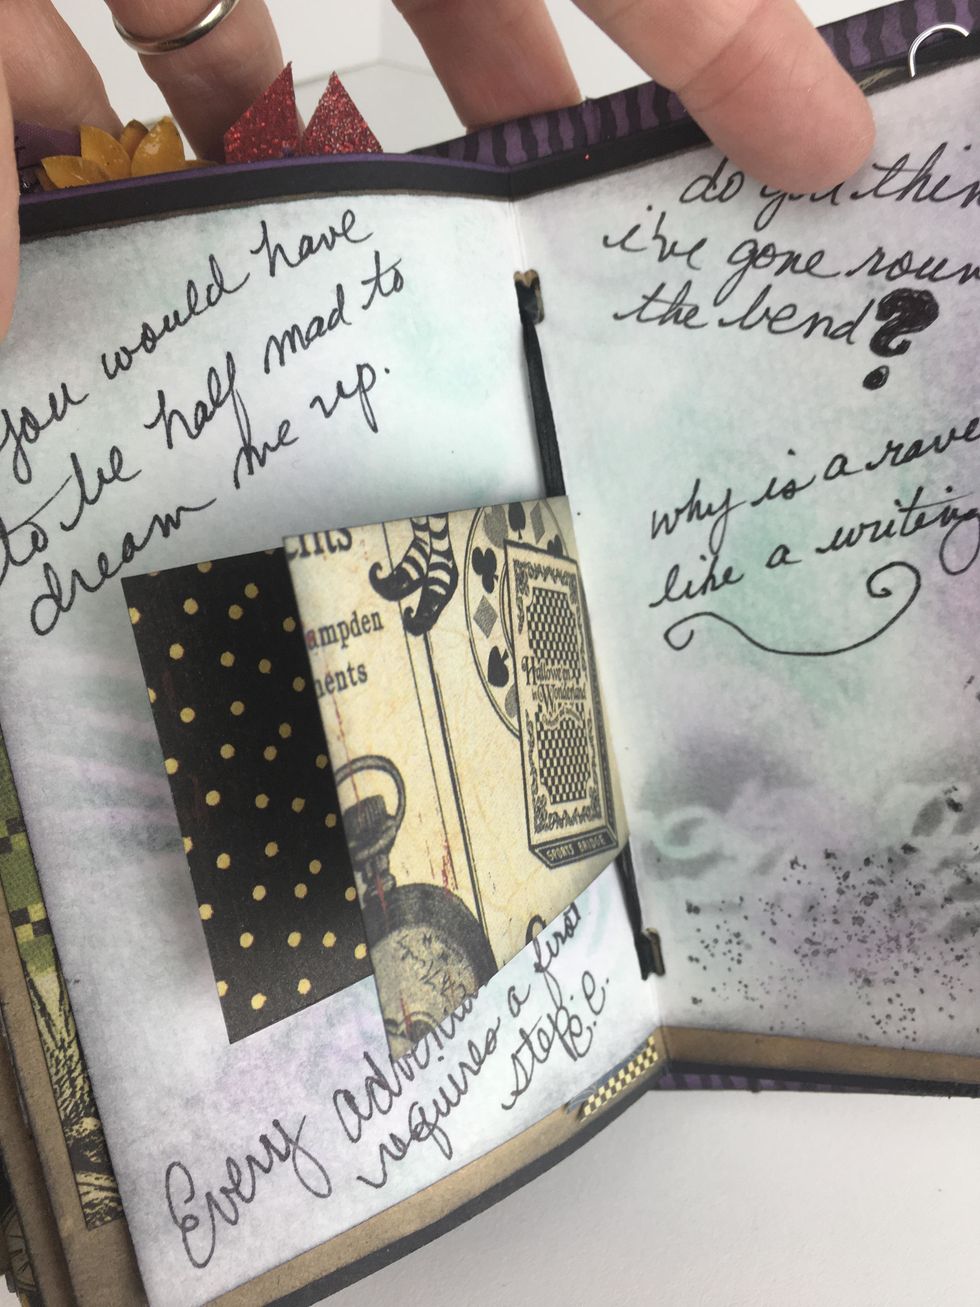 you would have
to be half mad to
dream me up.
ents
ampden
ments
Hallowe'en
in Wonderland
SPORTS BRIDGE
Every adventu
requires a first
step. C.C.
do you thin
i've gone roun
the bend?
why is a rave
like a writing